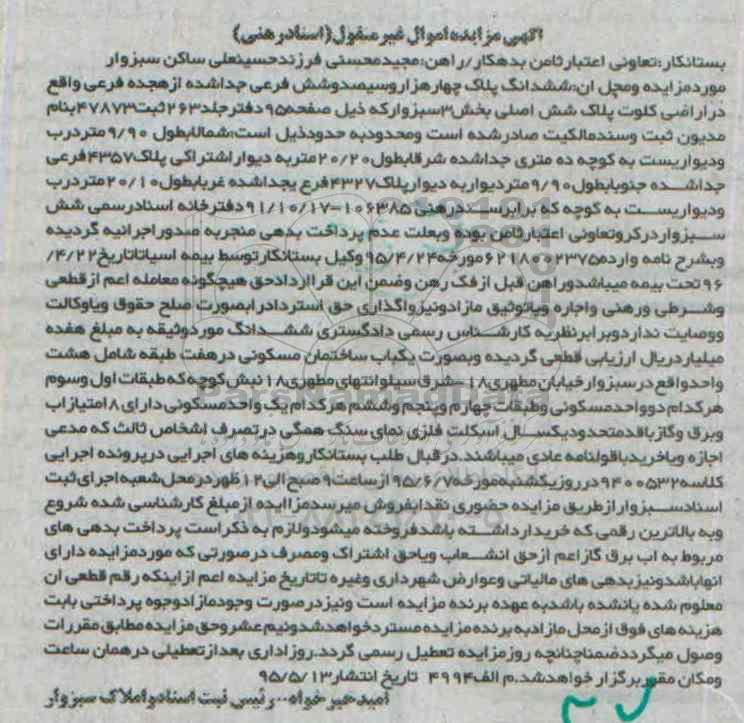 آگهی مزایده اموال غیر منقول(اسناد رهنی)
بستانکار:تعاونی اعتبار ثامن بدهکار/راهن:مجید محسنی فرزند حسینعلی ساکن سبزوار
مورد مزایده ومحل آن:ششدانگ پلاک چهارهزاروسیصدوشش فرعی جداشده از هجده فرعی واقع
دراراضی کلوت پلاک شش اصلی بخش۳سبزوار که ذیل صفحه۹۵دفترجلد۲۶۳ثبت۴۷۸۷۳بنام
مدیون ثبت وسندمالکیت صادرشده است ومحدودبه حدودذیل است:شمالابطول ۹/۹۰ متردرب
ودیواریست به کوچه ده متری جداشده شرقابطول۲۰/۲۰متربه دیواراشتراکی پلاک۴۳۵۷فرعی
جداشده جنوبابطول۹/۹۰متردیواربه دیوارپلاک۴۳۲۷فرع یجداشده غربابطول۲۰/۱۰متردرب
ودیواریست به کوچه که برابرسندرهنی۱۰۶۳۸۵-۹۱/۱۰/۱۷دفترخانه اسنادرسمی شش
سبزواردرگروتعاونی اعتبارثامن بوده وبعلت عدم پرداخت بدهی منجربه صدوراجرائیه گردیده
وبشرح نامه وارده۶۲۱۸۰۰۲۳۷۵مورخه۹۵/۴/۲۴وکیل بستانکارتوسط بیمه اسیاتاتاریخ۴/۲۲/
۹۶تحت بیمه میباشدوراهن قبل ازفک رهن وضمن این قراردادحق هیچگونه معامله اعم ازقطعی
وشرطی ورهنی واجاره ویاتوثیق مازادونیزواگذاری حق استرداد رابصورت صلح حقوق ویاوکالت
ووصایت نداردوبرابرنظریه کارشناس رسمی دادگستری ششدانگ موردوثیقه به مبلغ هفده
میلیاردریال ارزیابی قطعی گردیده وبصورت یکباب ساختمان مسکونی درهفت طبقه شامل هشت
واحدواقع درسبزوارخیابان مطهری۱۸-شرق سیلوانتهای مطهری۱۸نبش کوچه که طبقات اول وسوم
هرکدام دوواحدمسکونی وطبقات چهارم وپنجم وششم هرکدام یک واحدمسکونی دارای ۸امتیازاب
وبرق وگازباقدمتحدودیکسال اسکلت فلزی نمای سنگ همگی درتصرف اشخاص ثالث که مدعی
اجاره ویاخریدباقولنامه عادی میباشند.درقبال طلب بستانکاروهزینه های اجرایی درپرونده اجرایی
کلاسه۹۴۰۰۵۳۲درروزیکشنبه مورخه۹۵/۶/۷ازساعت۹صبح الی۱۲ظهردرمحل شعبه اجرای ثبت
اسنادسبزوارازطریق مزایده حضوری نقدابفروش میرسدمزاایده ازمبلغ کارشناسی شده شروع
وبه بالاترین رقمی که خریدارداشته باشدفروخته میشودولازم به ذکراست پرداخت بدهی های
مربوط به اب برق گازاعم ازحق انشعاب ویاحق اشتراک ومصرف درصورتی که موردمزایده دارای
انهاباشدونیزبدهی های مالیاتی وعوارض شهرداری وغیره تاتاریخ مزایده اعم ازاینکه رقم قطعی ان
معلوم شده یانشده باشدبه عهده برنده مزایده است ونیزدرصورت وجودمازادوجوه پرداختی بابت
هزینه های فوق ازمحل مازادبه برنده مزایده مستردخواهدشدونیم عشروحق مزایده مطابق مقررات
وصول میگرددضمناچنانچه روزمزایده تعطیل رسمی گردد.روزاداری بعدازتعطیلی درهمان ساعت
ومکان مقرربرگزارخواهدشد.م الف۴۹۹۴ تاریخ انتشار۹۵/۵/۱۳
امیدخیرخواه...رئیس ثبت اسنادواملاک سبزوار